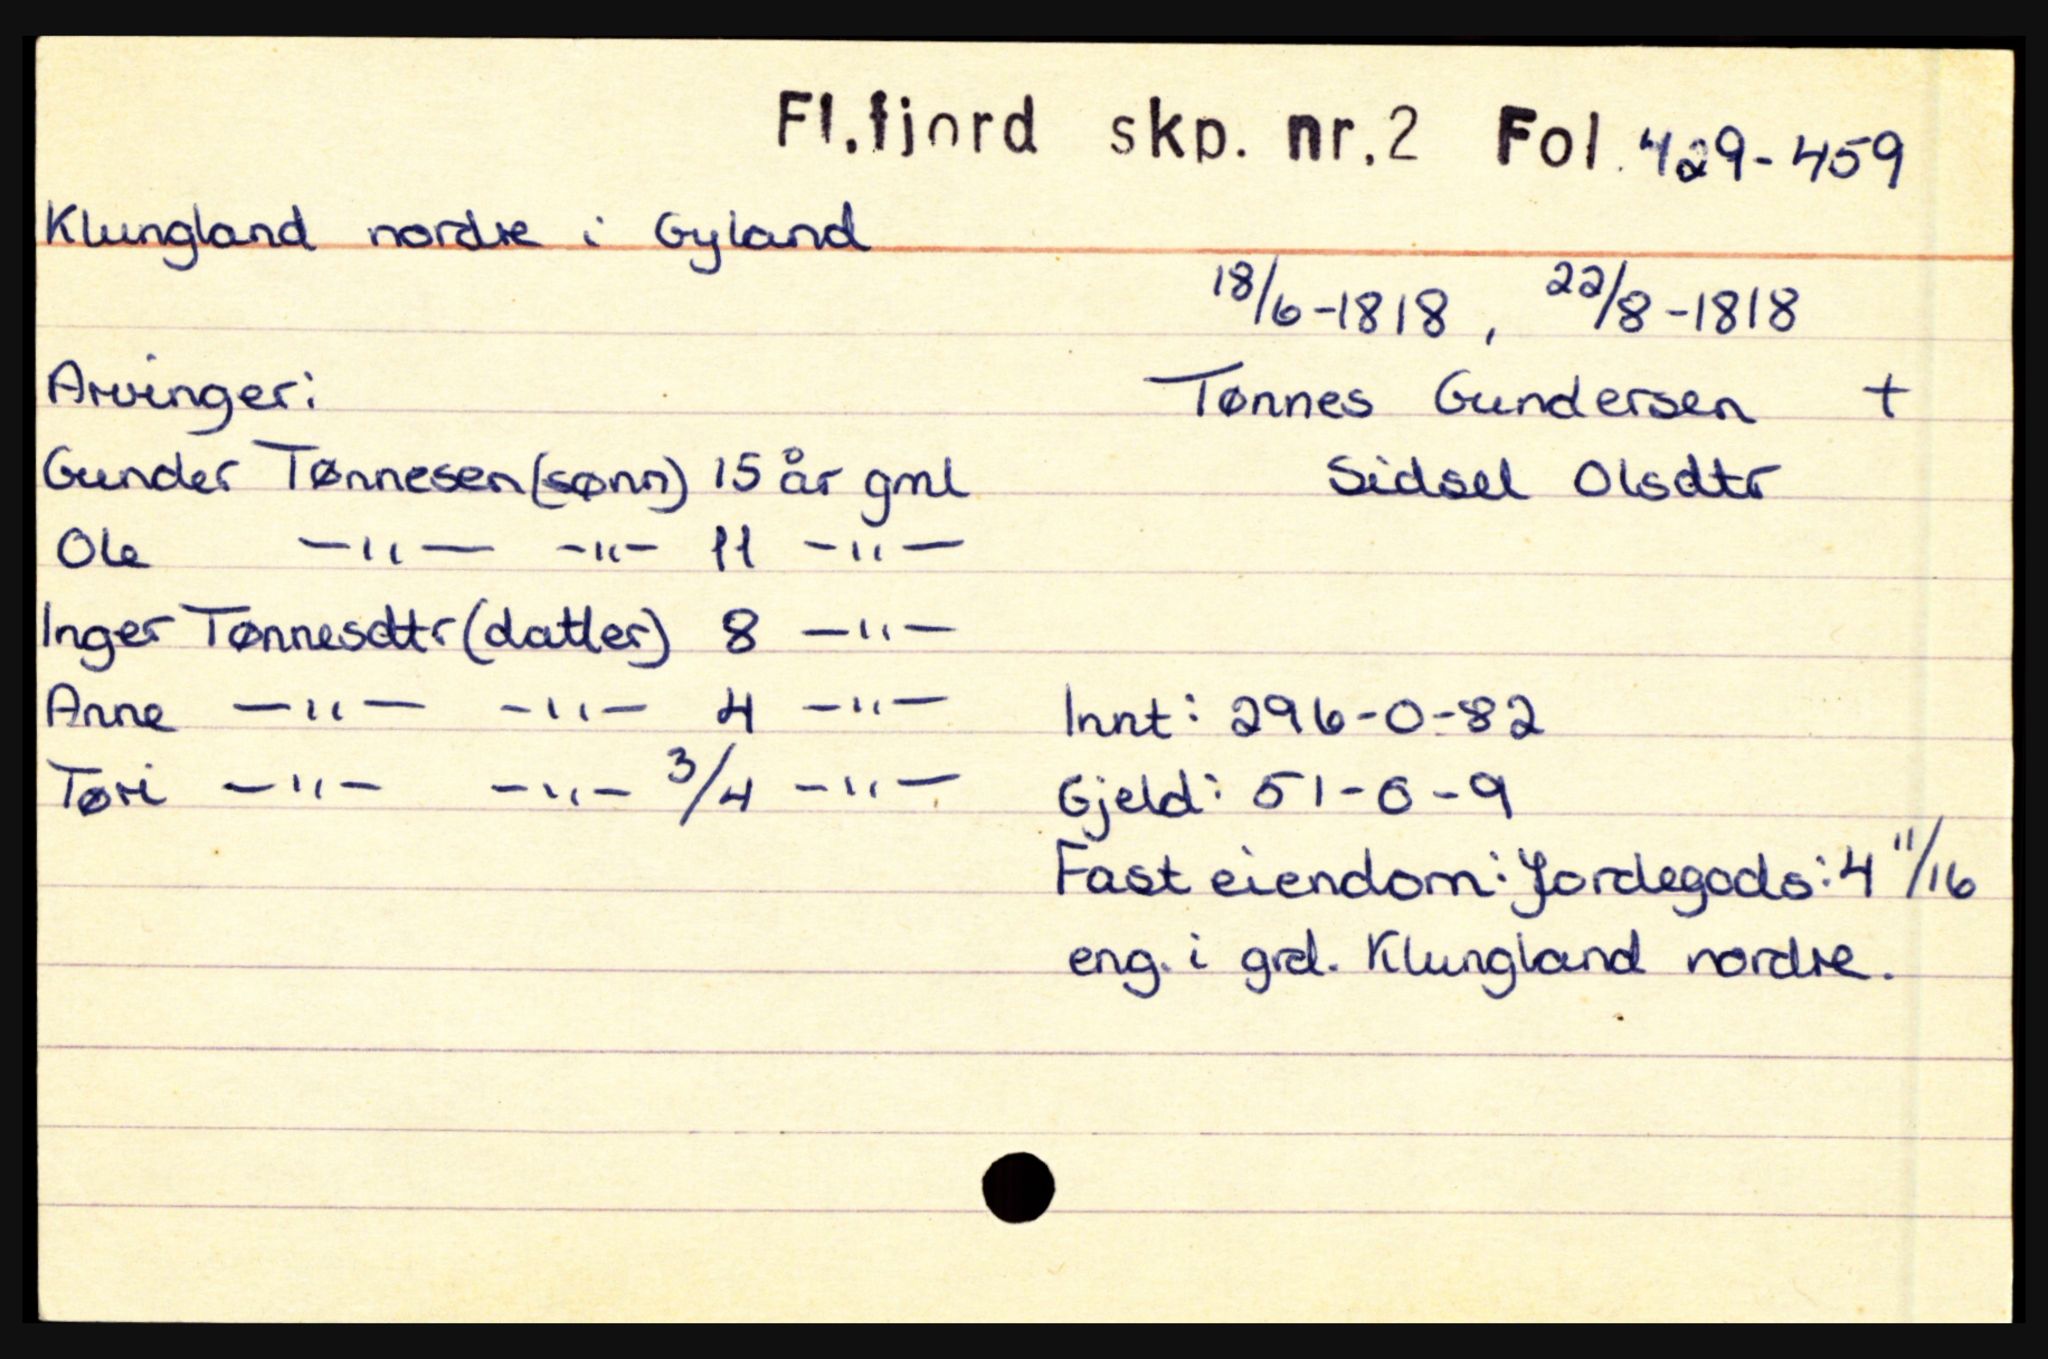 Fl.fjord skp. nr.2 Fol. 429-459
Klungland nordre i Gyland
18/6-1818, 22/8-1818
Arvinger:
Tønnes Gundersen +
Gunder Tønnesen (sønn) 15 år gml
Sidsel Olsdtr
Ole —"— —"— 11 —"—
Inger Tønnesdtr (datter) 8 —"—
Anne —"— —"— 4 —"—
Innt: 296-0-82
Tøri —"— —"— 3/4 —"—
Gjeld: 51-0-9
Fast eiendom: Jordegods: 4 11/16
eng. i grd. Klungland nordre.